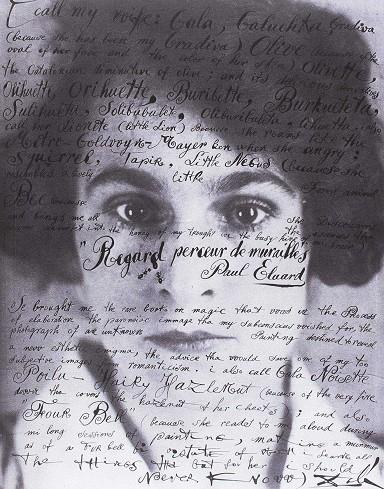 I call my wife: Gala, Galuchka Gradiva
(because she has been my Gradiva) Olive because of the
oval of her face and the color of her skin) Olivette,
the Catalonian diminutive of olive; and its
Orihuette, Buribette, Burkueteta,
Sulihueta, Solibubulet, Oliburibuleta,
call her Lionete (little Lion) Because she roars like the
Metro-Goldwyn-Mayer lion when she angry;
Squirrel, Tapir, Little Negus (Because she
resembles a lively little Forest animal
Bee because she
and brings me all the
the honey of my thought in the busy hive
"Regard perceur de murailles"
Paul Eluard
brought me the rare books on magic that the Process
of elaboration the paranoic immage tha my subconscious wished for the
photograph of an unknown Painting destined to reveal
a new esthetic enigma, the advice tha would save one of my too
subjective images romanticism. i also call Gala Noisette
Poilu - Hairy Hazlenut (because of the very fine
down tha covers the hazlenut of her cheeks); and also
"Four Bell" because she reads to me aloud during
mi long sessions of painting, making a murmur
as of a fur bell of which i learn all
the things tha but for her i should
Never Know)